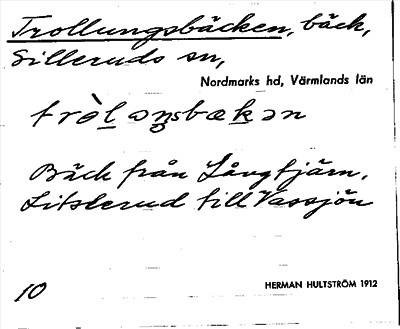 Trollungsbäcken, bäck,
Silleruds sn,
Nordmarks hd, Värmlands län
tròlaŋsbækən
Bäck från Långtjärn,
Litslerud till Vassjön
10
HERMAN HULTSTRÖM 1912